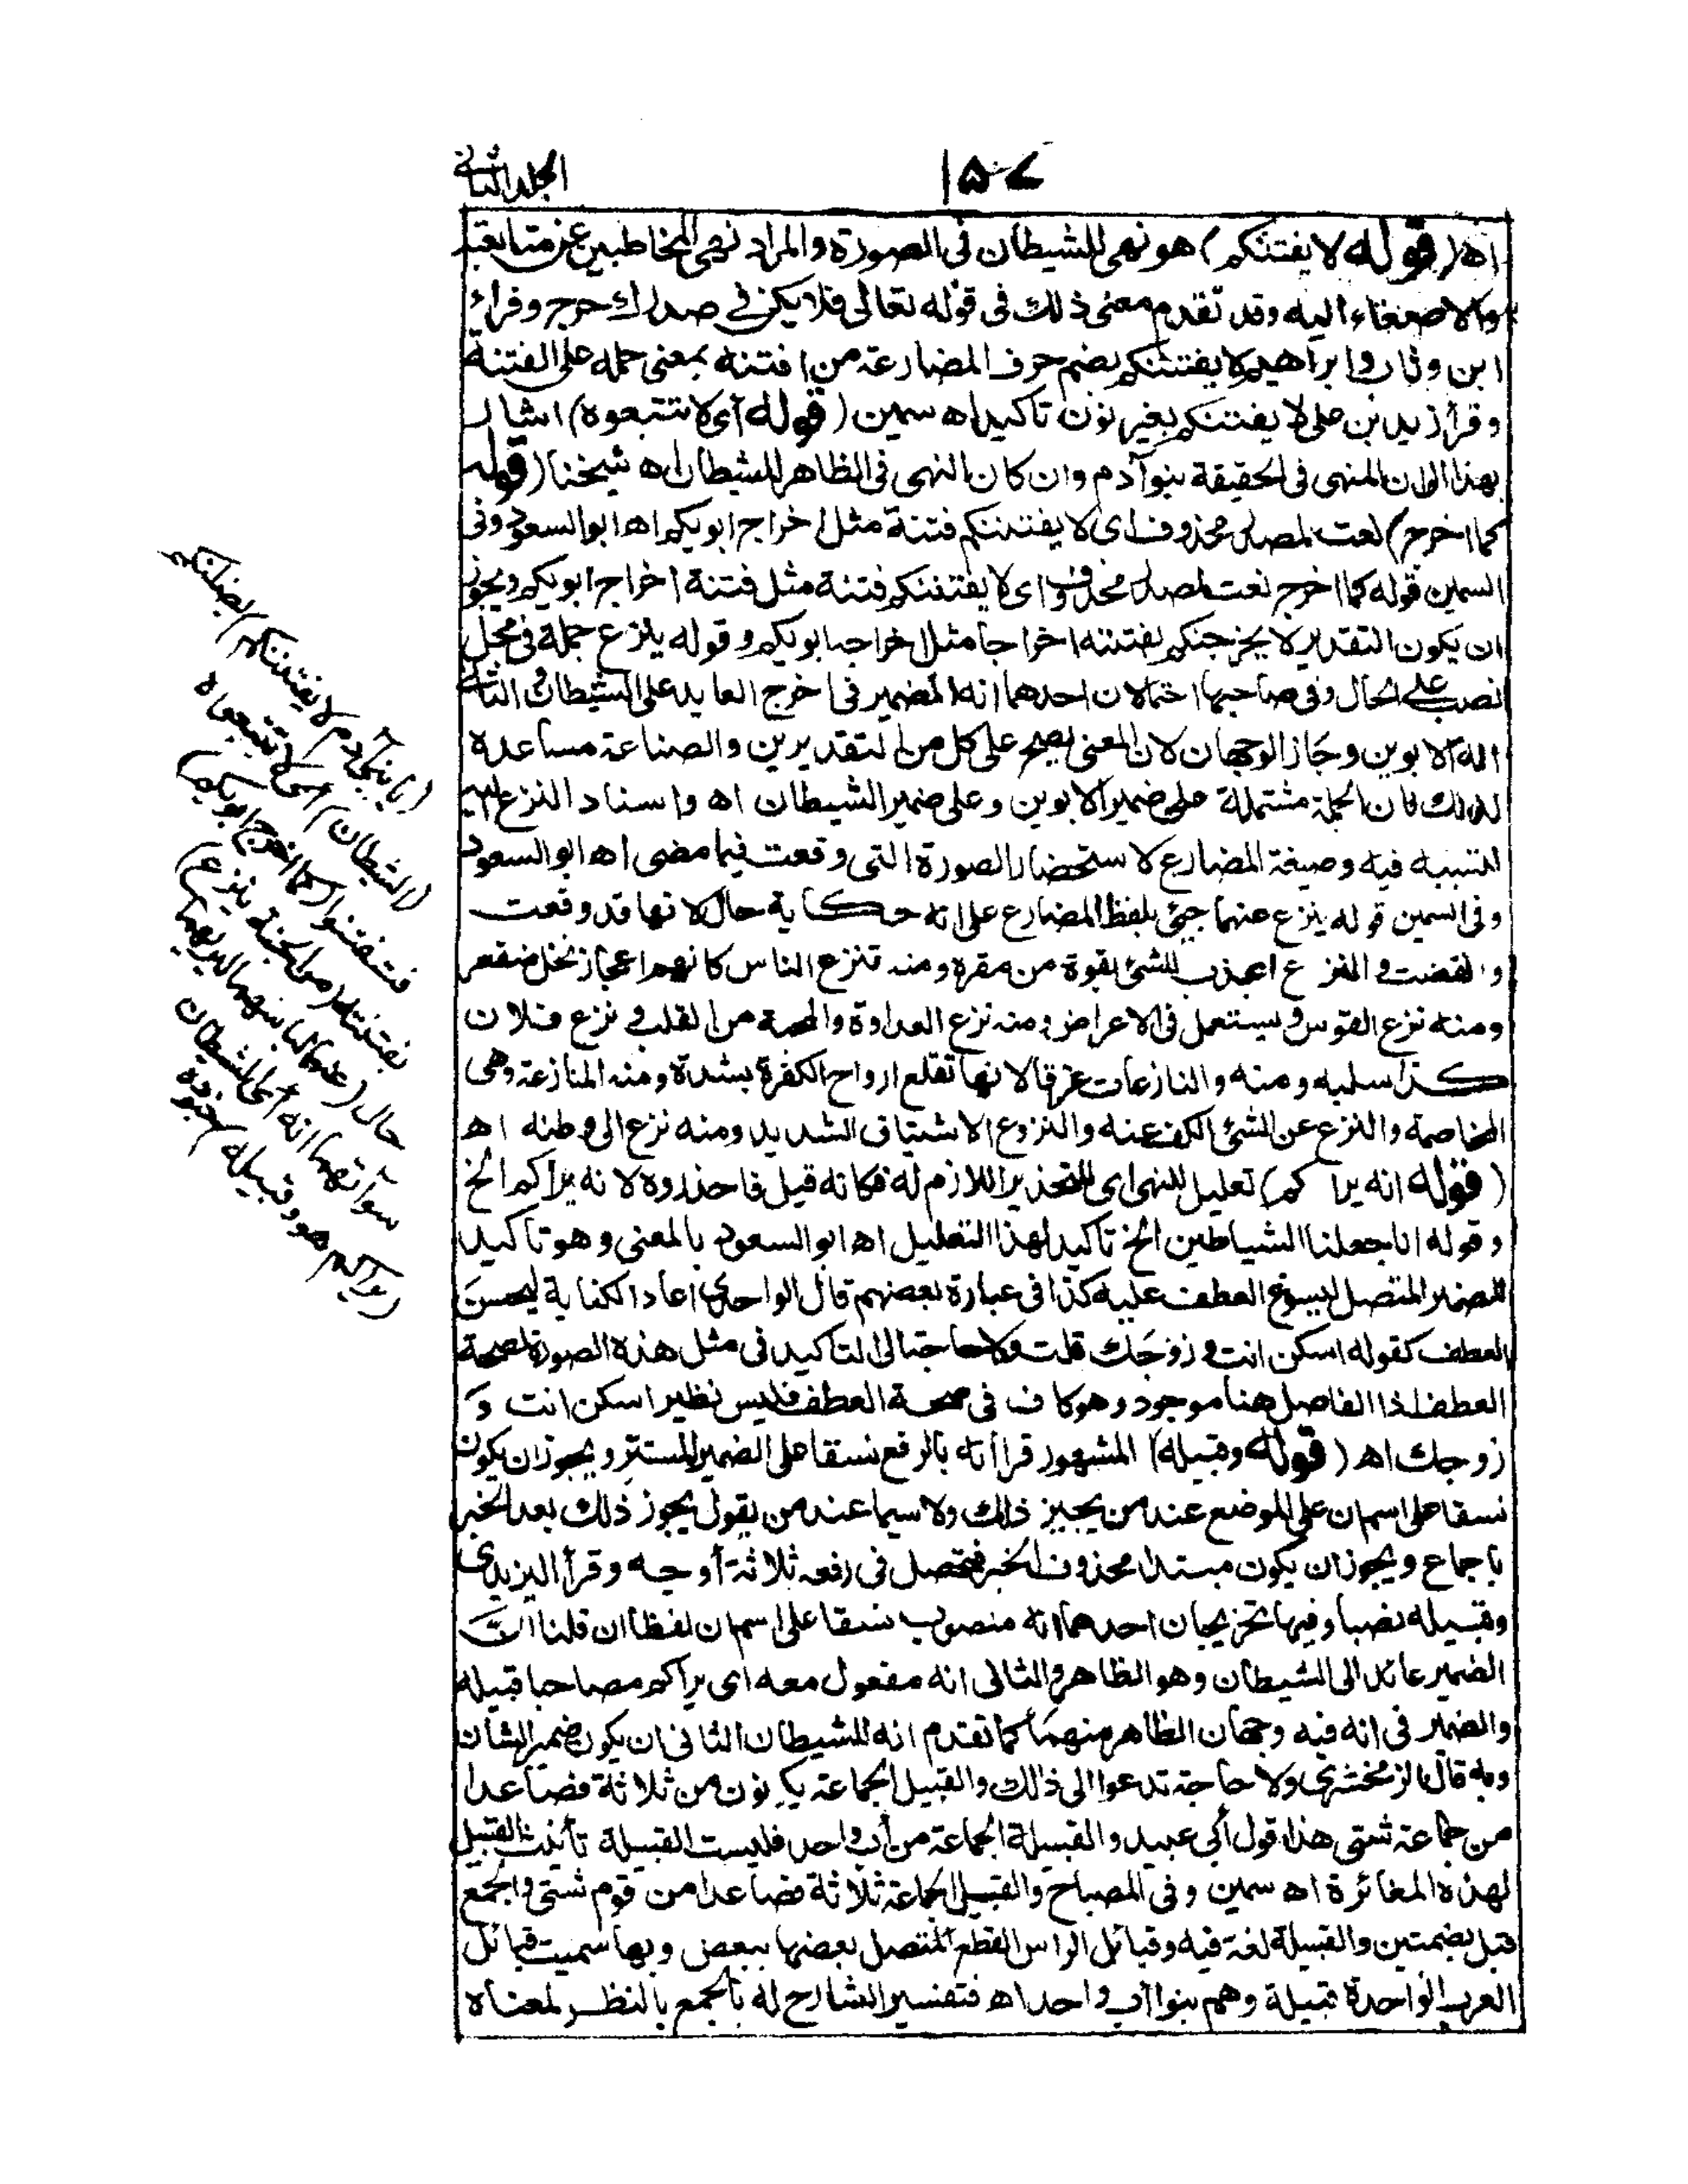 المجلد الثاني
اه (قوله لا يفتننكم) هو نهى للشيطان فى الصورة والمراد نهى المخاطبين عن متابعته
والاصغاء اليه وقد تقدم معنى ذلك فى قوله تعالى فلا يكن فى صدرك حرج وقراء
ابن وثاب وابراهيم لا يفتننكم بضم حرف المضارعة من افتنه بمعنى حمله على الفتنة
وقرأ زيد بن على لا يفتنكم بغير نون تاكيد اه سمين (قوله أى لا تتبعوه) اشار
بهذا الى ان المنهى فى الحقيقة بنو آدم وان كان النهى فى الظاهر للشيطان اه شيخنا (قوله
كما اخرج) نعت لمصدر محذوف اى لا يفتننكم فتنة مثل اخراج ابويكم اه ابوالسعود وفى
السمين قوله كما اخرج نعت لمصدر محذوف اى لا يفتننكم فتنة مثل فتنة اخراج ابويكم ويجوز
ان يكون التقدير لا يخرجنكم بفتنته اخراجا مثل اخراجه ابويكم وقوله ينزع جملة فى محل
نصب على الحال وفى صاحبها احتمالان احدهما انه الضمير فى اخرج العايد على الشيطان والثانى
انه الابوين وجاز الوجهان لان المعنى يصح على كل من التقديرين والصناعة مساعدة
لذلك فان الجملة مشتملة على ضمير الابوين وعلى ضمير الشيطان اه واسناد النزع اليه
لتسببه فيه وصيغة المضارع لاستحضار الصورة التى وقعت فيما مضى اه ابو السعود
وفى السمين قوله ينزع عنهما جئ بلفظ المضارع على انه حكاية حال لانها قد وقعت
وانقضت والنزع الجذب للشئ بقوة من مقره ومنه تنزع الناس كانهم اعجاز نخل منقعر
ومنه نزع القوس ويستعمل فى الاعراض ومنه نزع العداوة والمحبة من القلب ونزع فلان
كذا سلبه ومنه والنازعات غرقا لانها تقلع ارواح الكفرة بشدة ومنه المنازعة وهى
المخاصمة والنزع عن الشئ الكف عنه والنزوع الاشتياق الشديد ومنه نزع الى وطنه اه
(قوله انه يراكم) تعليل للنهى اى للتحذير اللازم له فكانه قيل فاحذروه لانه يراكم الخ
وقوله انا جعلنا الشياطين الخ تاكيد لهذا التعليل اه ابو السعود بالمعنى وهو تاكيد
للضمير المتصل ليسوغ العطف عليه كذا فى عبارة بعضهم قال الواحدى اعاد الكناية ليحسن
العطف كقوله اسكن انت وزوجك قلت ولا حاجة الى التاكيد فى مثل هذه الصورة لصحة
العطف اذ الفاصل هنا موجود وهو كاف فى صحة العطف فليس نظير اسكن انت و
زوجك اه (قوله وقبيله) المشهور قراأته بالرفع نسقا على الضمير المستتر ويجوز ان يكون
نسقا على اسم ان على الموضع عند من يجيز ذلك ولا سيما عند من يقول يجوز ذلك بعد الخبر
باجماع ويجوز ان يكون مبتدأ محذوف الخبر فتحصل فى رفعه ثلاثة أوجه وقرأ اليزيدى
وقبيله نصبا وفيها تخريجان احدهما انه منصوب نسقا على اسم ان لفظا ان قلنا ان
الضمير عائد الى الشيطان وهو الظاهر والثانى انه مفعول معه اى يراكم مصاحبا قبيله
والضمير فى انه فيه وجهان الظاهر منهما كما تقدم انه للشيطان الثانى ان يكون ضمير الشان
وبه قال الزمخشرى ولا حاجة تدعوا الى ذلك والقبيل الجماعة يكونون من ثلاثة فصاعدا
من جماعة شتى هذا قول أبى عبيد والقبيلة الجماعة من أب واحد فليست القبيلة تأنيث القبيل
لهذه المغائرة اه سمين وفى المصباح والقبيل الجماعة ثلاثة فصاعدا من قوم شتى والجمع
قبل بضمتين والقبيلة لغة فيه وقبائل الراس القطع المتصل بعضها ببعض وبها سميت قبائل
العرب الواحدة قبيلة وهم بنوا أب واحد اه فتفسير الشارح له بالجمع بالنظر لمعناه
(يا بنى آدم لا يفتننكم) يضلنكم
(الشيطان) اى لا تتبعوه
فتفتنوا (كما اخرج ابويكم)
بفتنته (من الجنة ينزع)
حال (عنهما لباسهما ليريهما
سوآتهما انه) اى الشيطان
(يراكم هو وقبيله) جنوده